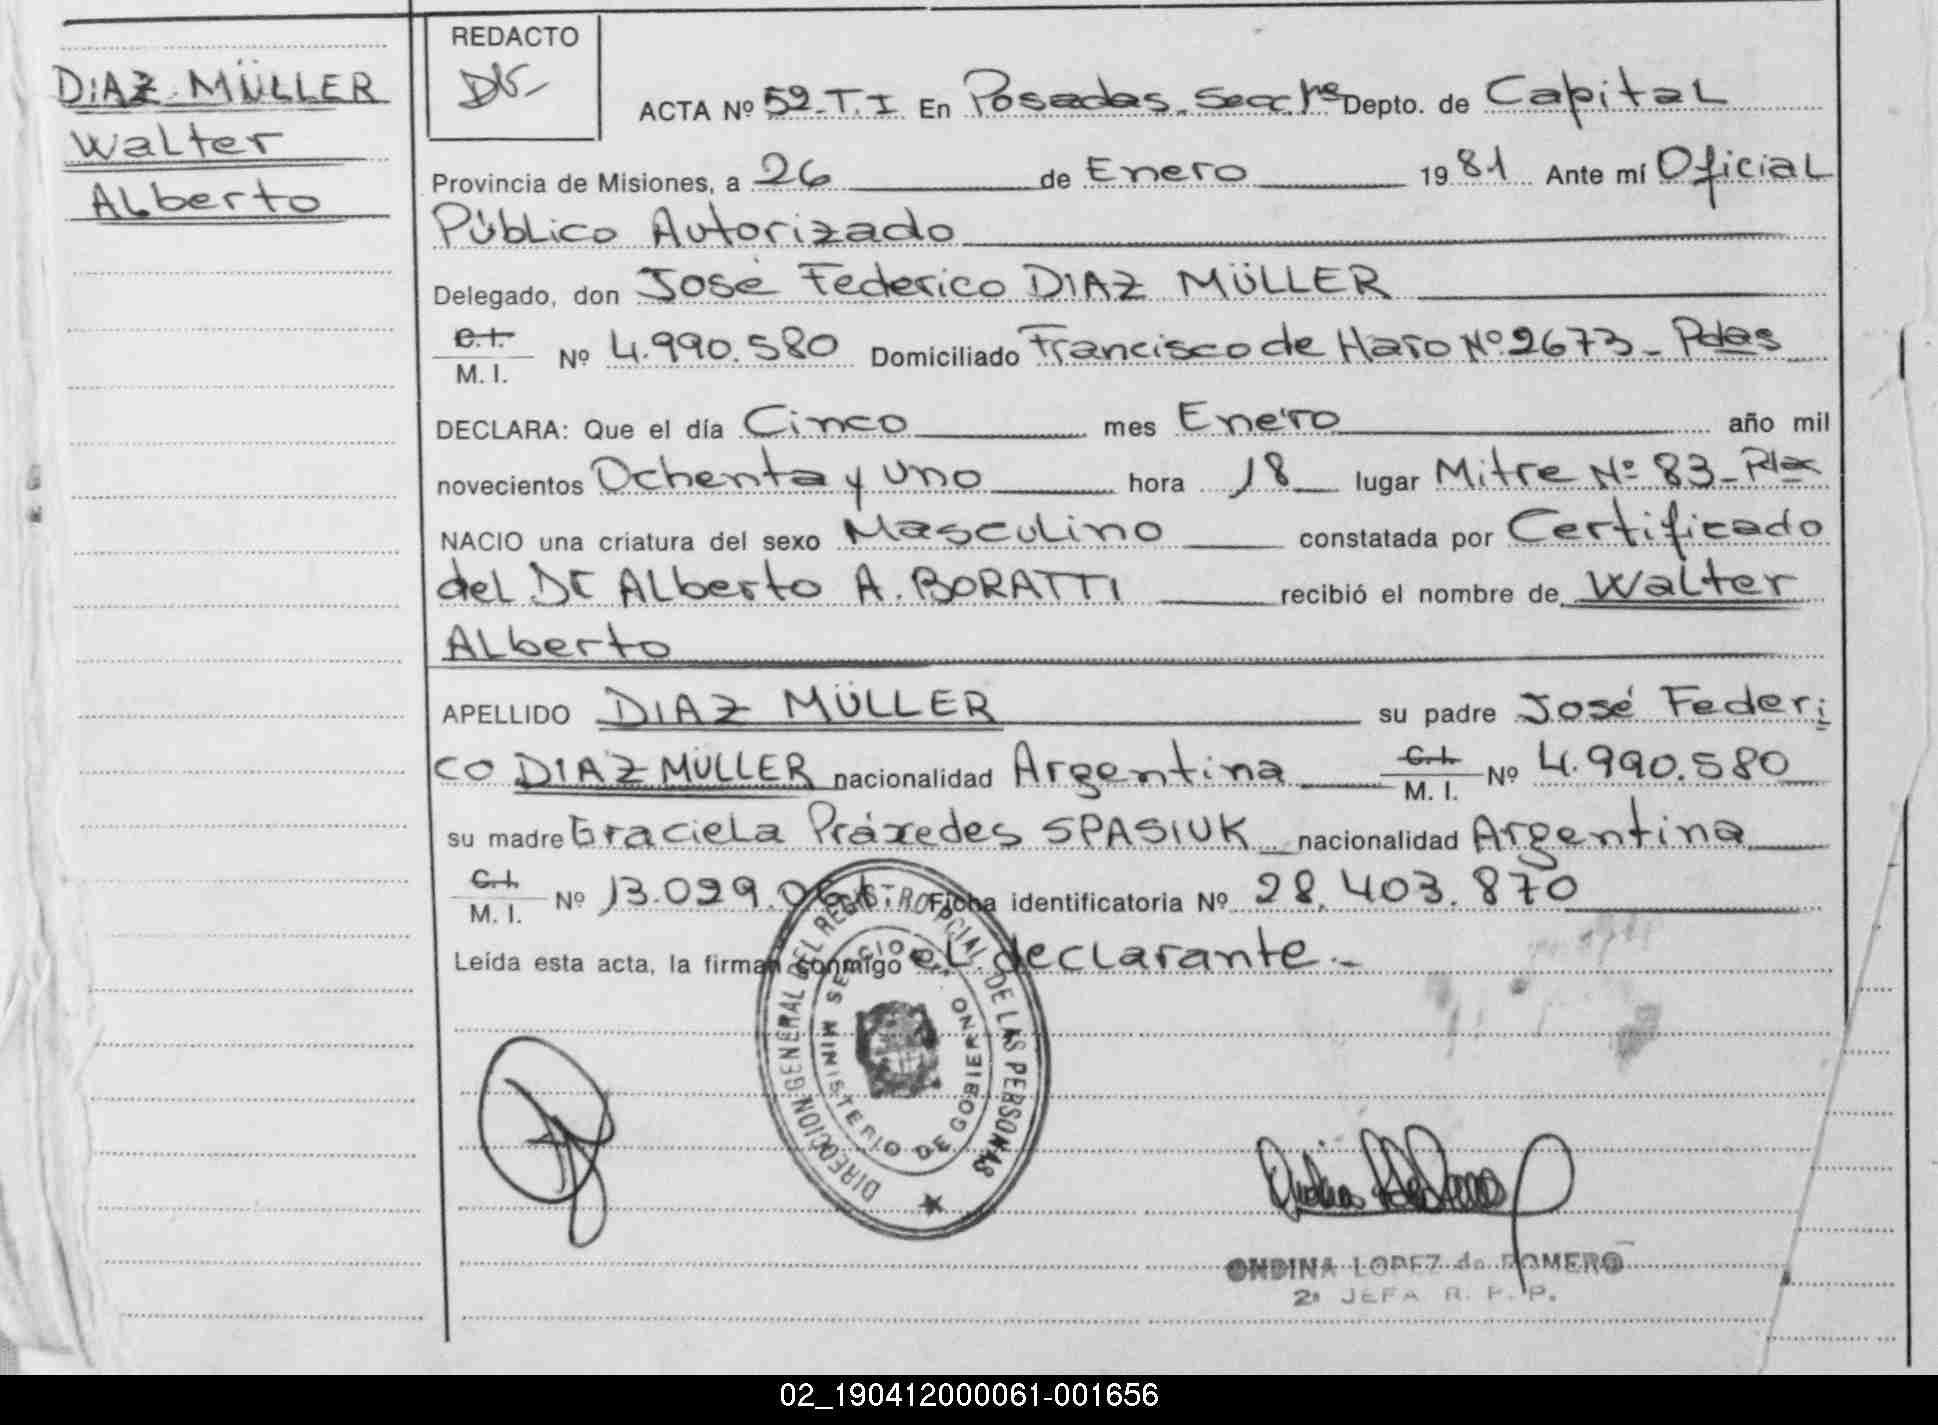 DIAZ MÜLLER
Walter
Alberto
REDACTO
ACTA Nº 59-T.I En Posadas. Secc 1ra Depto. de Capital
Provincia de Misiones, a 26 de Enero 1981 Ante mí Oficial
Público Autorizado
Delegado, don José Federico DIAZ MÜLLER
C.I.
M. I. Nº 4.990.580 Domiciliado Francisco de Haro Nº 2673 - Pdas
DECLARA: Que el día Cinco mes Enero año mil
novecientos Ochenta y Uno hora 18 lugar Mitre Nº 83 -
NACIO una criatura del sexo Masculino constatada por Certificado
del Dr Alberto A. BORATTI recibió el nombre de Walter
Alberto
APELLIDO DIAZ MÜLLER su padre José Federi
co DIAZ MÜLLER nacionalidad Argentina C.I.
M. I. Nº 4.990.580
su madre Graciela Práxedes SPASIUK nacionalidad Argentina
C.I.
M. I. Nº 13.029. Ficha identificatoria Nº 28.403.870
Leída esta acta, la firman conmigo el declarante.-
DIRECCION GENERAL DEL REGISTRO PCIAL. DE LAS PERSONAS
MINISTERIO DE GOBIERNO
ONDINA LOPEZ de ROMERO
2ª JEFA R. P. P.
02_190412000061-001656